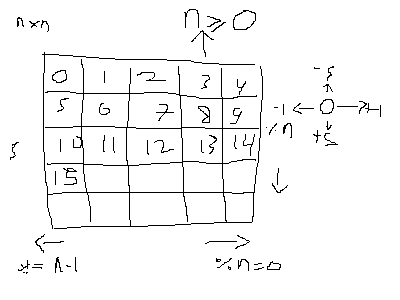 n×n
n≥0
0 1 2 3 4
5 6 7 8 9
10 11 12 13 14
15
5
-5
-1 0 +1
+5
%n
%n=0